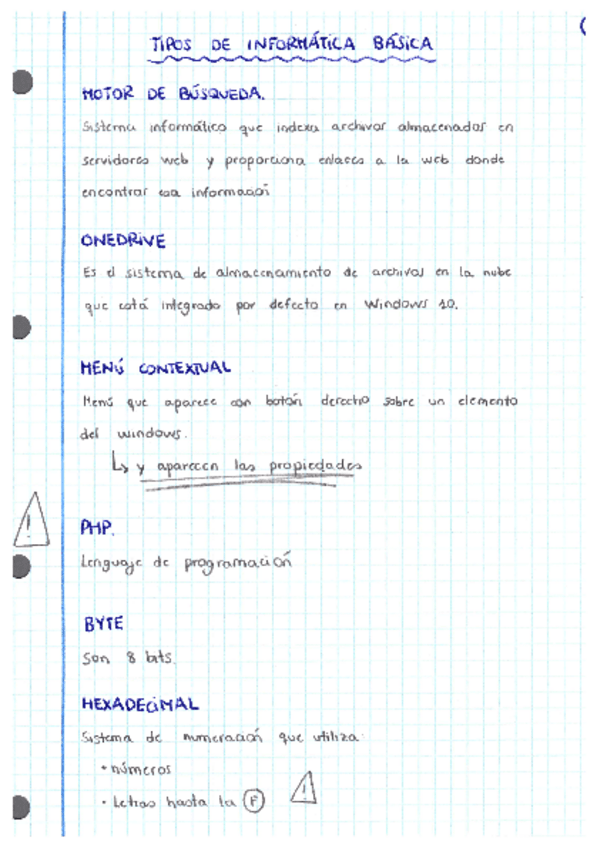 TIPOS DE INFORMÁTICA BÁSICA
MOTOR DE BÚSQUEDA.
Sistema informático que indexa archivos almacenados en
servidores web y proporciona enlaces a la web donde
encontrar esa información
ONEDRIVE
Es el sistema de almacenamiento de archivos en la nube
que está integrado por defecto en Windows 10.
MENÚ CONTEXTUAL
Menú que aparece con botón derecho sobre un elemento
del windows.
↳ y aparecen las propiedades
!
PHP.
Lenguaje de programación
BYTE
Son 8 bits.
HEXADECIMAL
Sistema de numeración que utiliza:
• números
• Letras hasta la F !